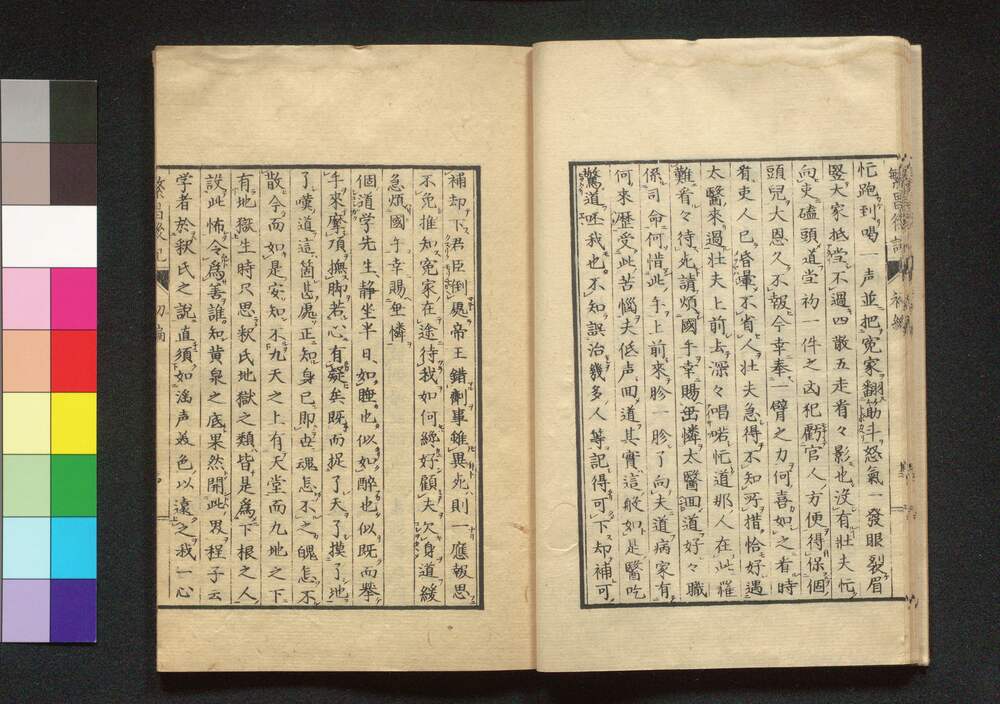 忙跑到喝一声並把冤家翻筋斗怒氣一發眼裂眉
大家抵堂不過四散五走看々影也没有壮夫忙
向吏磕頭道堂初一件之凶犯虧官人方便得保個
頭兒大恩久不報今幸奉一臂之力何喜如之看時
看吏人已昏暈不省人壮夫急得不知所措恰好遇
太醫來過壮夫上前去深々唱喏忙道那人在此罹
難看々待先請煩國手幸賜毋憐太醫回道好々職
係司命何惜此手上前來胗一胗了向夫道病家有
何來歷受此苦惱夫低声回道其實這般如是醫吃
驚道呸我也不知誤治幾多人等記得可下却補可
補却下君臣倒處帝王錯制事雖異死則一應報思
不免推知冤家在途待我如何經好顧夫欠身道緩
急煩國手幸賜毋憐
個道学先生静坐半日如睡也似如醉也似既而挙
手來摩頂撫脚若心有疑矣既而捉了天了摸了地
了嘆道這箇甚處正知身已即
散今而如是安知不九天之上有天堂而九地之下
有地獄生時只思釈氏地獄之類皆是為下根之人
設此怖令為善誰知黄泉之底果然開此界程子云
学者於釈氏之說直須如淫声美色以遠之我一心
繁昌後記 初編